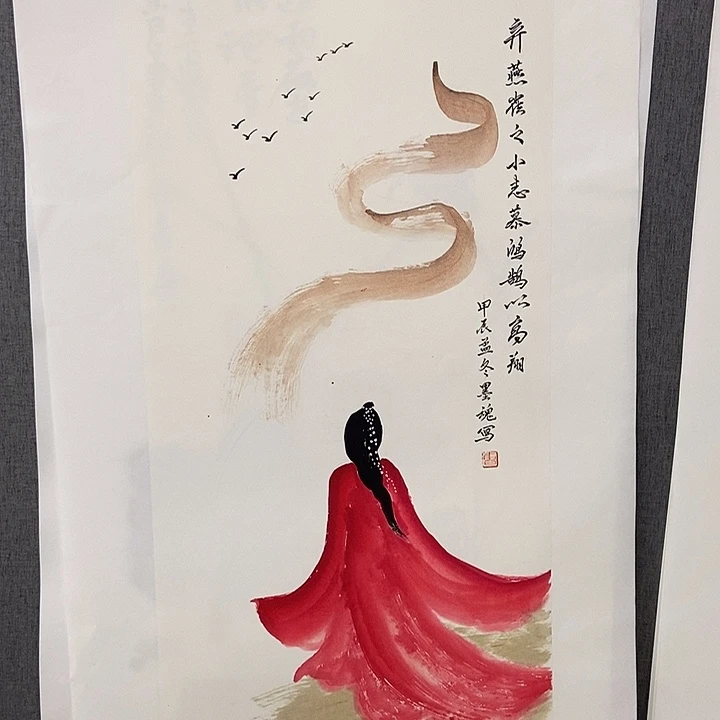 弃燕雀之小志慕鸿鹄以高翔
甲辰孟冬墨魂写